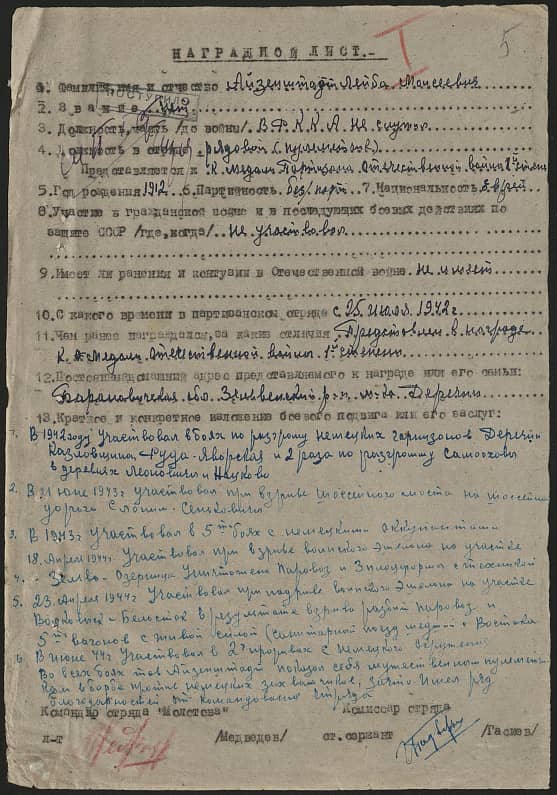 I
5
НАГРАДНОЙ ЛИСТ.-
1. Фамилия, имя и отчество Айзенштадт Лейба Моисеевич
2. Звание нет
3. Должность, часть /до войны/ В Р.К.К.А. не служил
4. Должность в отряде рядовой (пулеметчик)
Представляется к "К медали Партизана Отечественной войны 1й степени
5. Год рождения 1912 6. Партийность без/парт 7. Национальность Еврей
8. Участие в гражданской войне и в последующих боевых действиях по
защите СССР /где, когда/ Не участвовал
9. Имеет ли ранения и контузии в Отечественной войне. Не имеет
10. С какого времени в партизанском отряде с 25 июля 1942 г.
11. Чем ранее награждался, за какие отличия Представлен к награде
к медали Отечественной войны 1й степени
12. Постоянный домашний адрес представляемого к награде или его семьи:
Барановичская обл. Зельвенский р-н м-ко Деречин
13. Краткое и конкретное изложение боевого подвига или его заслуг:
1. В 1942 году участвовал в боях по разгрому немецких гарнизонов Деречин
Козловщина Руда-Яворская и 2 раза по разгрому самооховы
в деревнях Леоновичи и Нацково
2. В 21 июне 1943 г участвовал при взрыве шоссейного моста на шоссейной
дороге Слоним - Сеньковичи
3. В 1943 г участвовал в 5ти боях с немецкими оккупантами
4. 18. Апреля 1944 г. Участвовал при взрыве воинского эшелона на участке
Зельва - Озерница Уничтожена Паровоз и 3 платформы с техникой
5. 23. Апреля 1944 г Участвовал при подрыве воинского эшелона на участке
Волковыск - Белосток в результате взрыва разбит паровоз и
5ть вагонов с живой силой (санитарный поезд шедший с Востока
6. В июне 44 г Участвовал в 2х прорывах с немецкого окружения
Во всех боях тов Айзенштадт показал себя мужественным пулеметчи
ком в борьбе против немецких захватчиков, за что имел ряд
благодарностей от командования отряда
Командир отряда "Молотова" Комиссар отряда
л-т /Медведев/ ст. сержант /Гасиев/